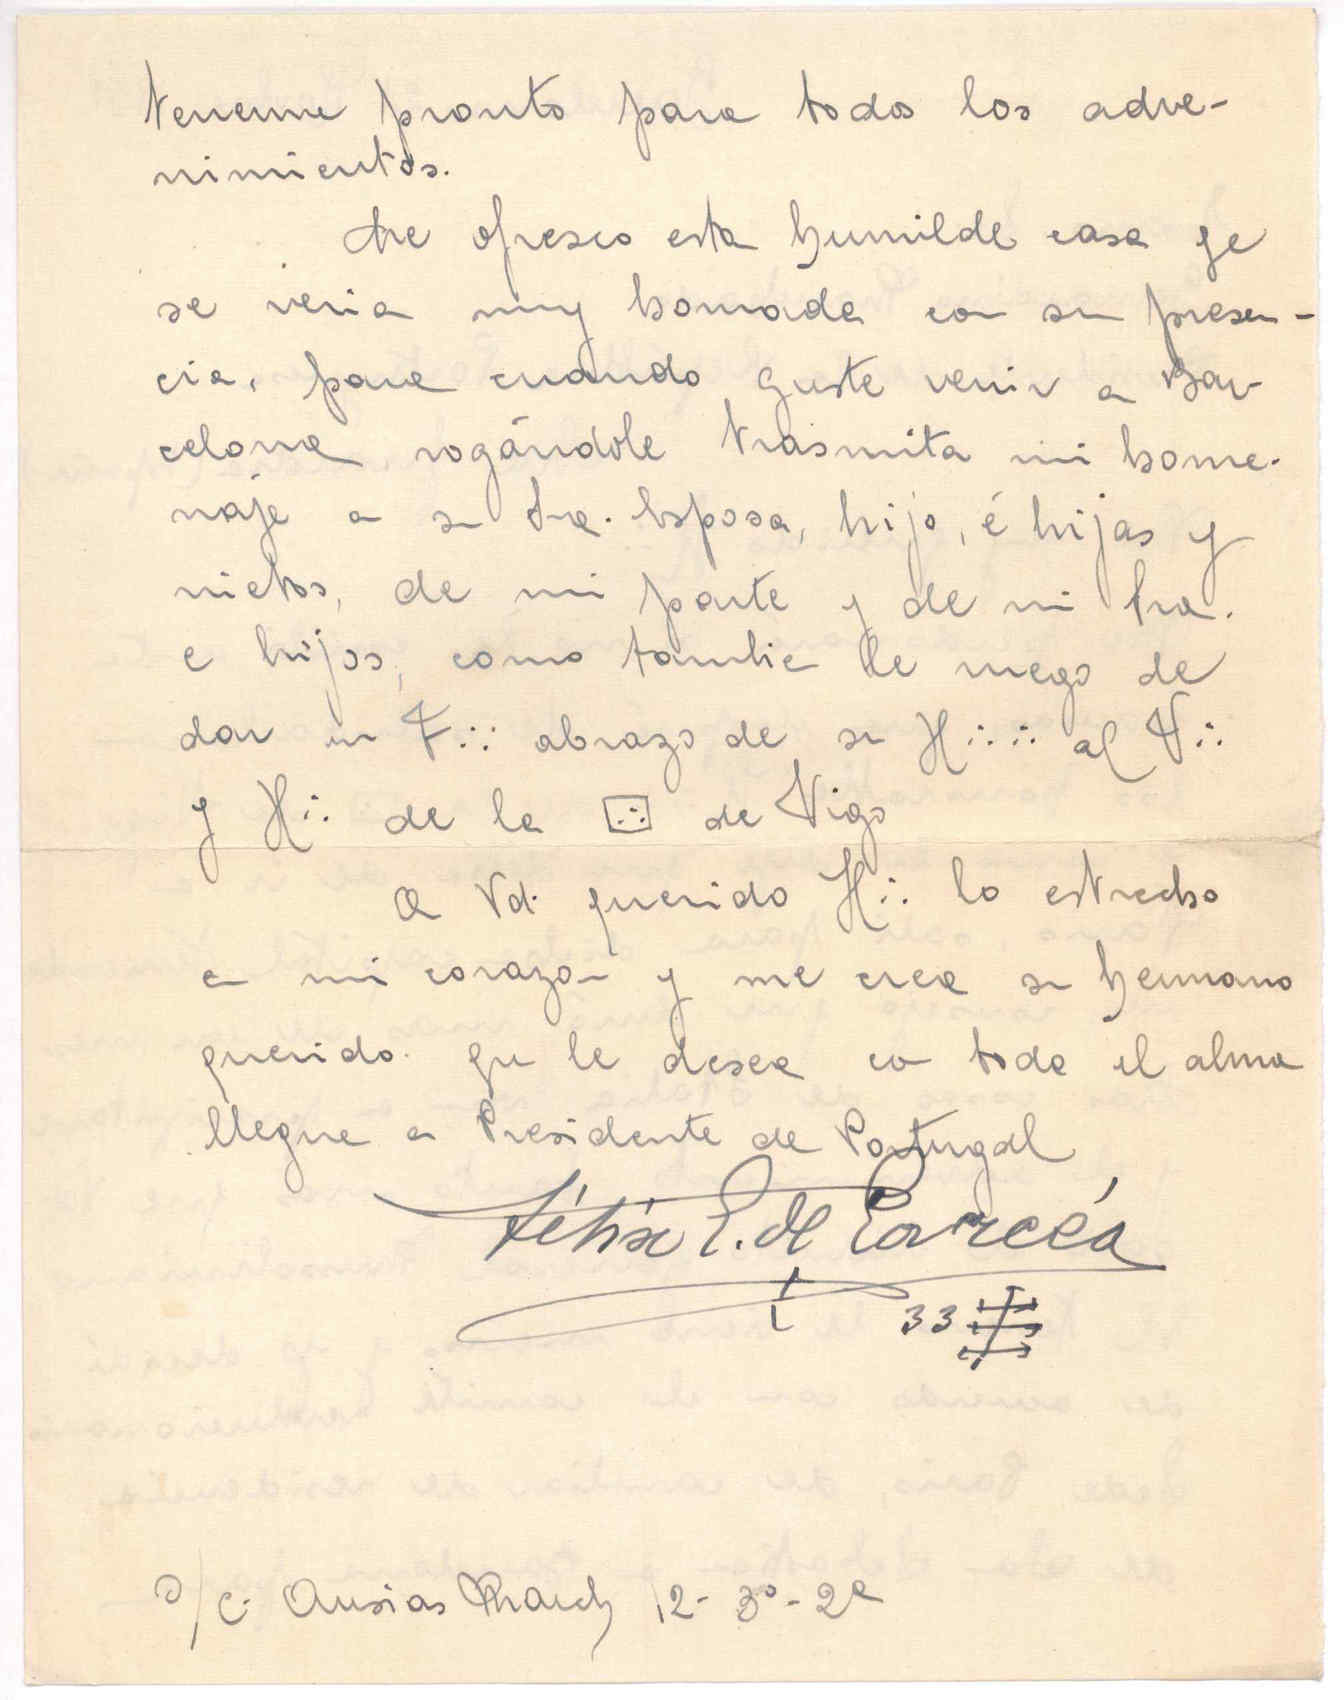 tenerme pronto para todos los adve-
nimientos.
Le ofresco esta humilde casa qe
se veria muy honrada con su presen-
cia, para cuando guste venir a Bar-
celona rogándole trasmita mi home-
naje a su Sra. Esposa, hijo, é hijas y
nietos, de mi parte y de mi Sra.
e hijos, como tambie le ruego de
dar un F∴ abrazo de su H∴∴ al V∴
y H∴ de la [∴] de Vigo
A Vd. querido H∴ lo estrecho
en mi corazon y me crea su hermano
querido. qu le desea con toda el alma
llegue a Presidente de Portugal
Félix E. de
33
S/C. Ausias March 12- 3º- 2ª